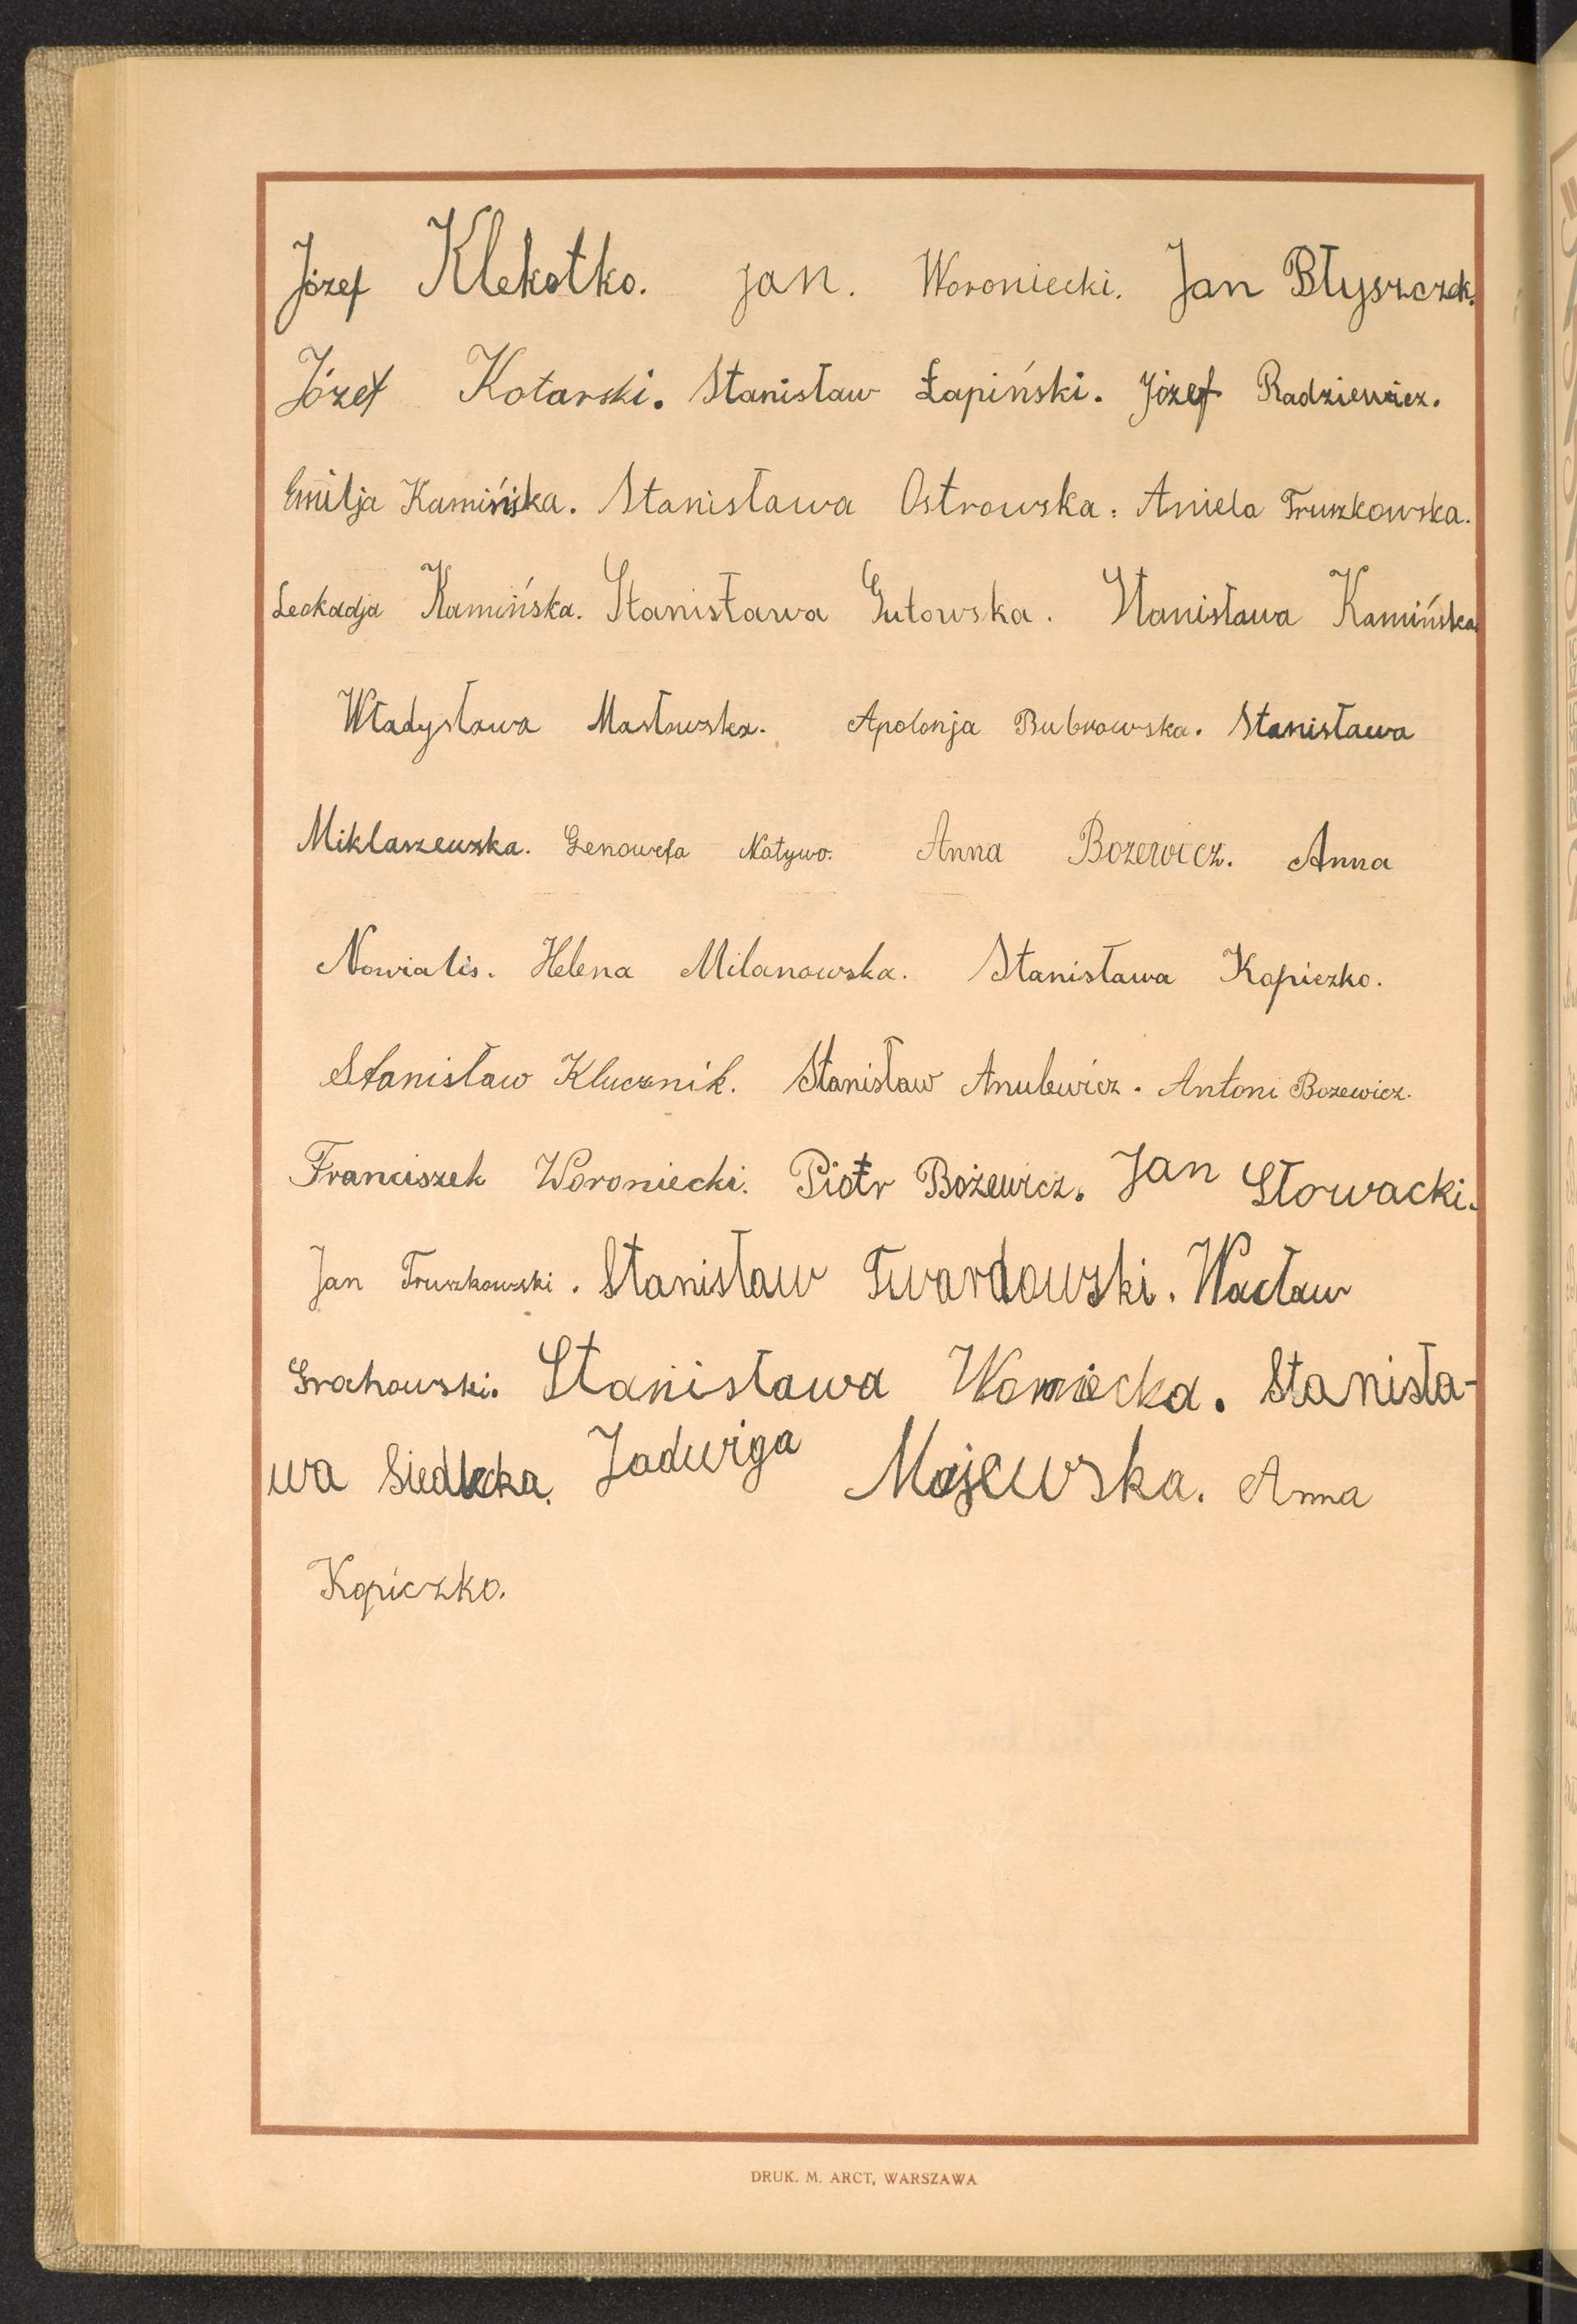 Józef Klekotko. Jan. Woroniecki. Jan Błyszczek.
Józef Kotarski. Stanisław Łapiński. Józef Radziewicz.
Emilja Kamińska. Stanisława Ostrowska. Aniela Truszkowska.
Leokadja Kamińska. Stanisława Gutowska. Stanisława Kamińska
Władysława Masłowska. Apolonja Bubrowska. Stanisława
Miklaszewska. Genowefa Natywo. Anna Bozewicz. Anna
Nowialis. Helena Milanowska. Stanisława Kopiczko.
Stanisław Klucznik. Stanisław Anulewicz. Antoni Bozewicz.
Franciszek Woroniecki. Piotr Bożewicz. Jan Słowacki.
Jan Truszkowski. Stanisław Twardowski. Wacław
Grochowski. Stanisława. Stanisła-
wa Siedlecka. Jadwiga Majewska. Anna
Kopiczko.
DRUK. M. ARCT, WARSZAWA